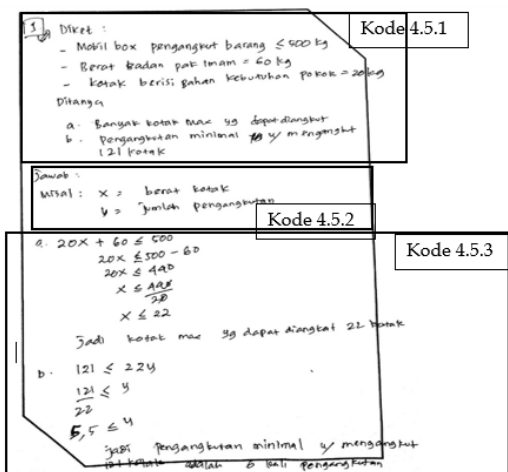 1 Diket :
Kode 4.5.1
- Mobil box pengangkut barang ≤ 500 kg
- Berat badan pak Imam = 60 kg
- kotak berisi bahan kebutuhan pokok = 20 kg
Ditanya
a. Banyak kotak max yg dapat diangkut
b. Pengangkutan minimal u/ mengangkut
121 kotak
Jawab :
Misal : x = berat kotak
y = jumlah pengangkutan
Kode 4.5.2
Kode 4.5.3
a. 20x + 60 ≤ 500
20x ≤ 500 - 60
20x ≤ 440
x ≤ 440/20
x ≤ 22
Jadi kotak max yg dapat diangkat 22 kotak
b. 121 ≤ 22y
121/22 ≤ y
5,5 ≤ y
Jadi pengangkutan minimal u/ mengangkut
121 kotak adalah 6 kali pengangkutan